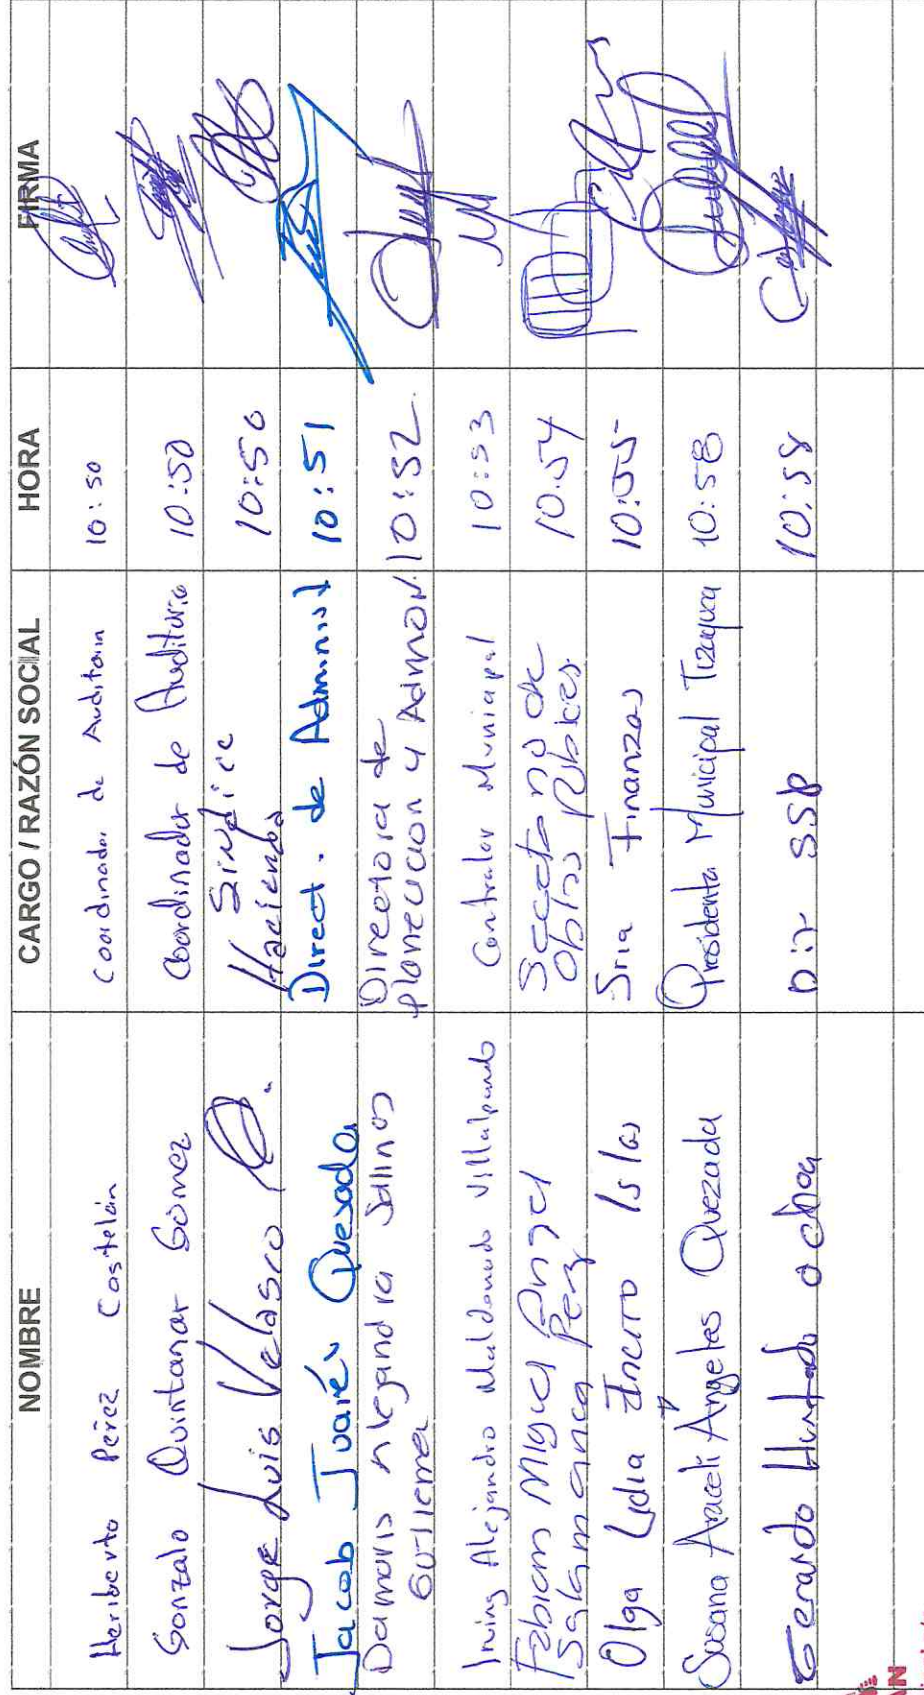 NOMBRE CARGO / RAZÓN SOCIAL HORA FIRMA
Heriberto Pérez Castelán Coordinador de Auditoria 10:50
Gonzalo Quintanar Gómez Coordinador de Auditoria 10:50
Jorge Luis Velasco Síndice Hacienda 10:50
Jacob Juaréz Quesada Direct. de Administ 10:51
Damaris Alejandra Salinas Directora de
Gutierrez planeación y Admon. 10:52
Irving Alejandro Maldonado Villalpando Contralor Municipal 10:53
Fabiam Miguel Angel Secretario de
Salamanca Perez Obras Publicas. 10:54
Olga Lidia Islas Sria Finanzas 10:55
Susana Araceli Ángeles Quezada Presidenta Municipal Tizayuca 10:58
Gerardo Hurtado Ochoa Dir SSP 10:58
AN